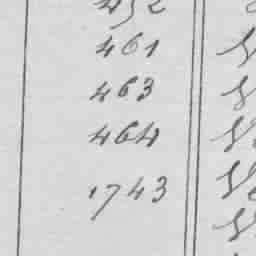 452
461
463
464
1743